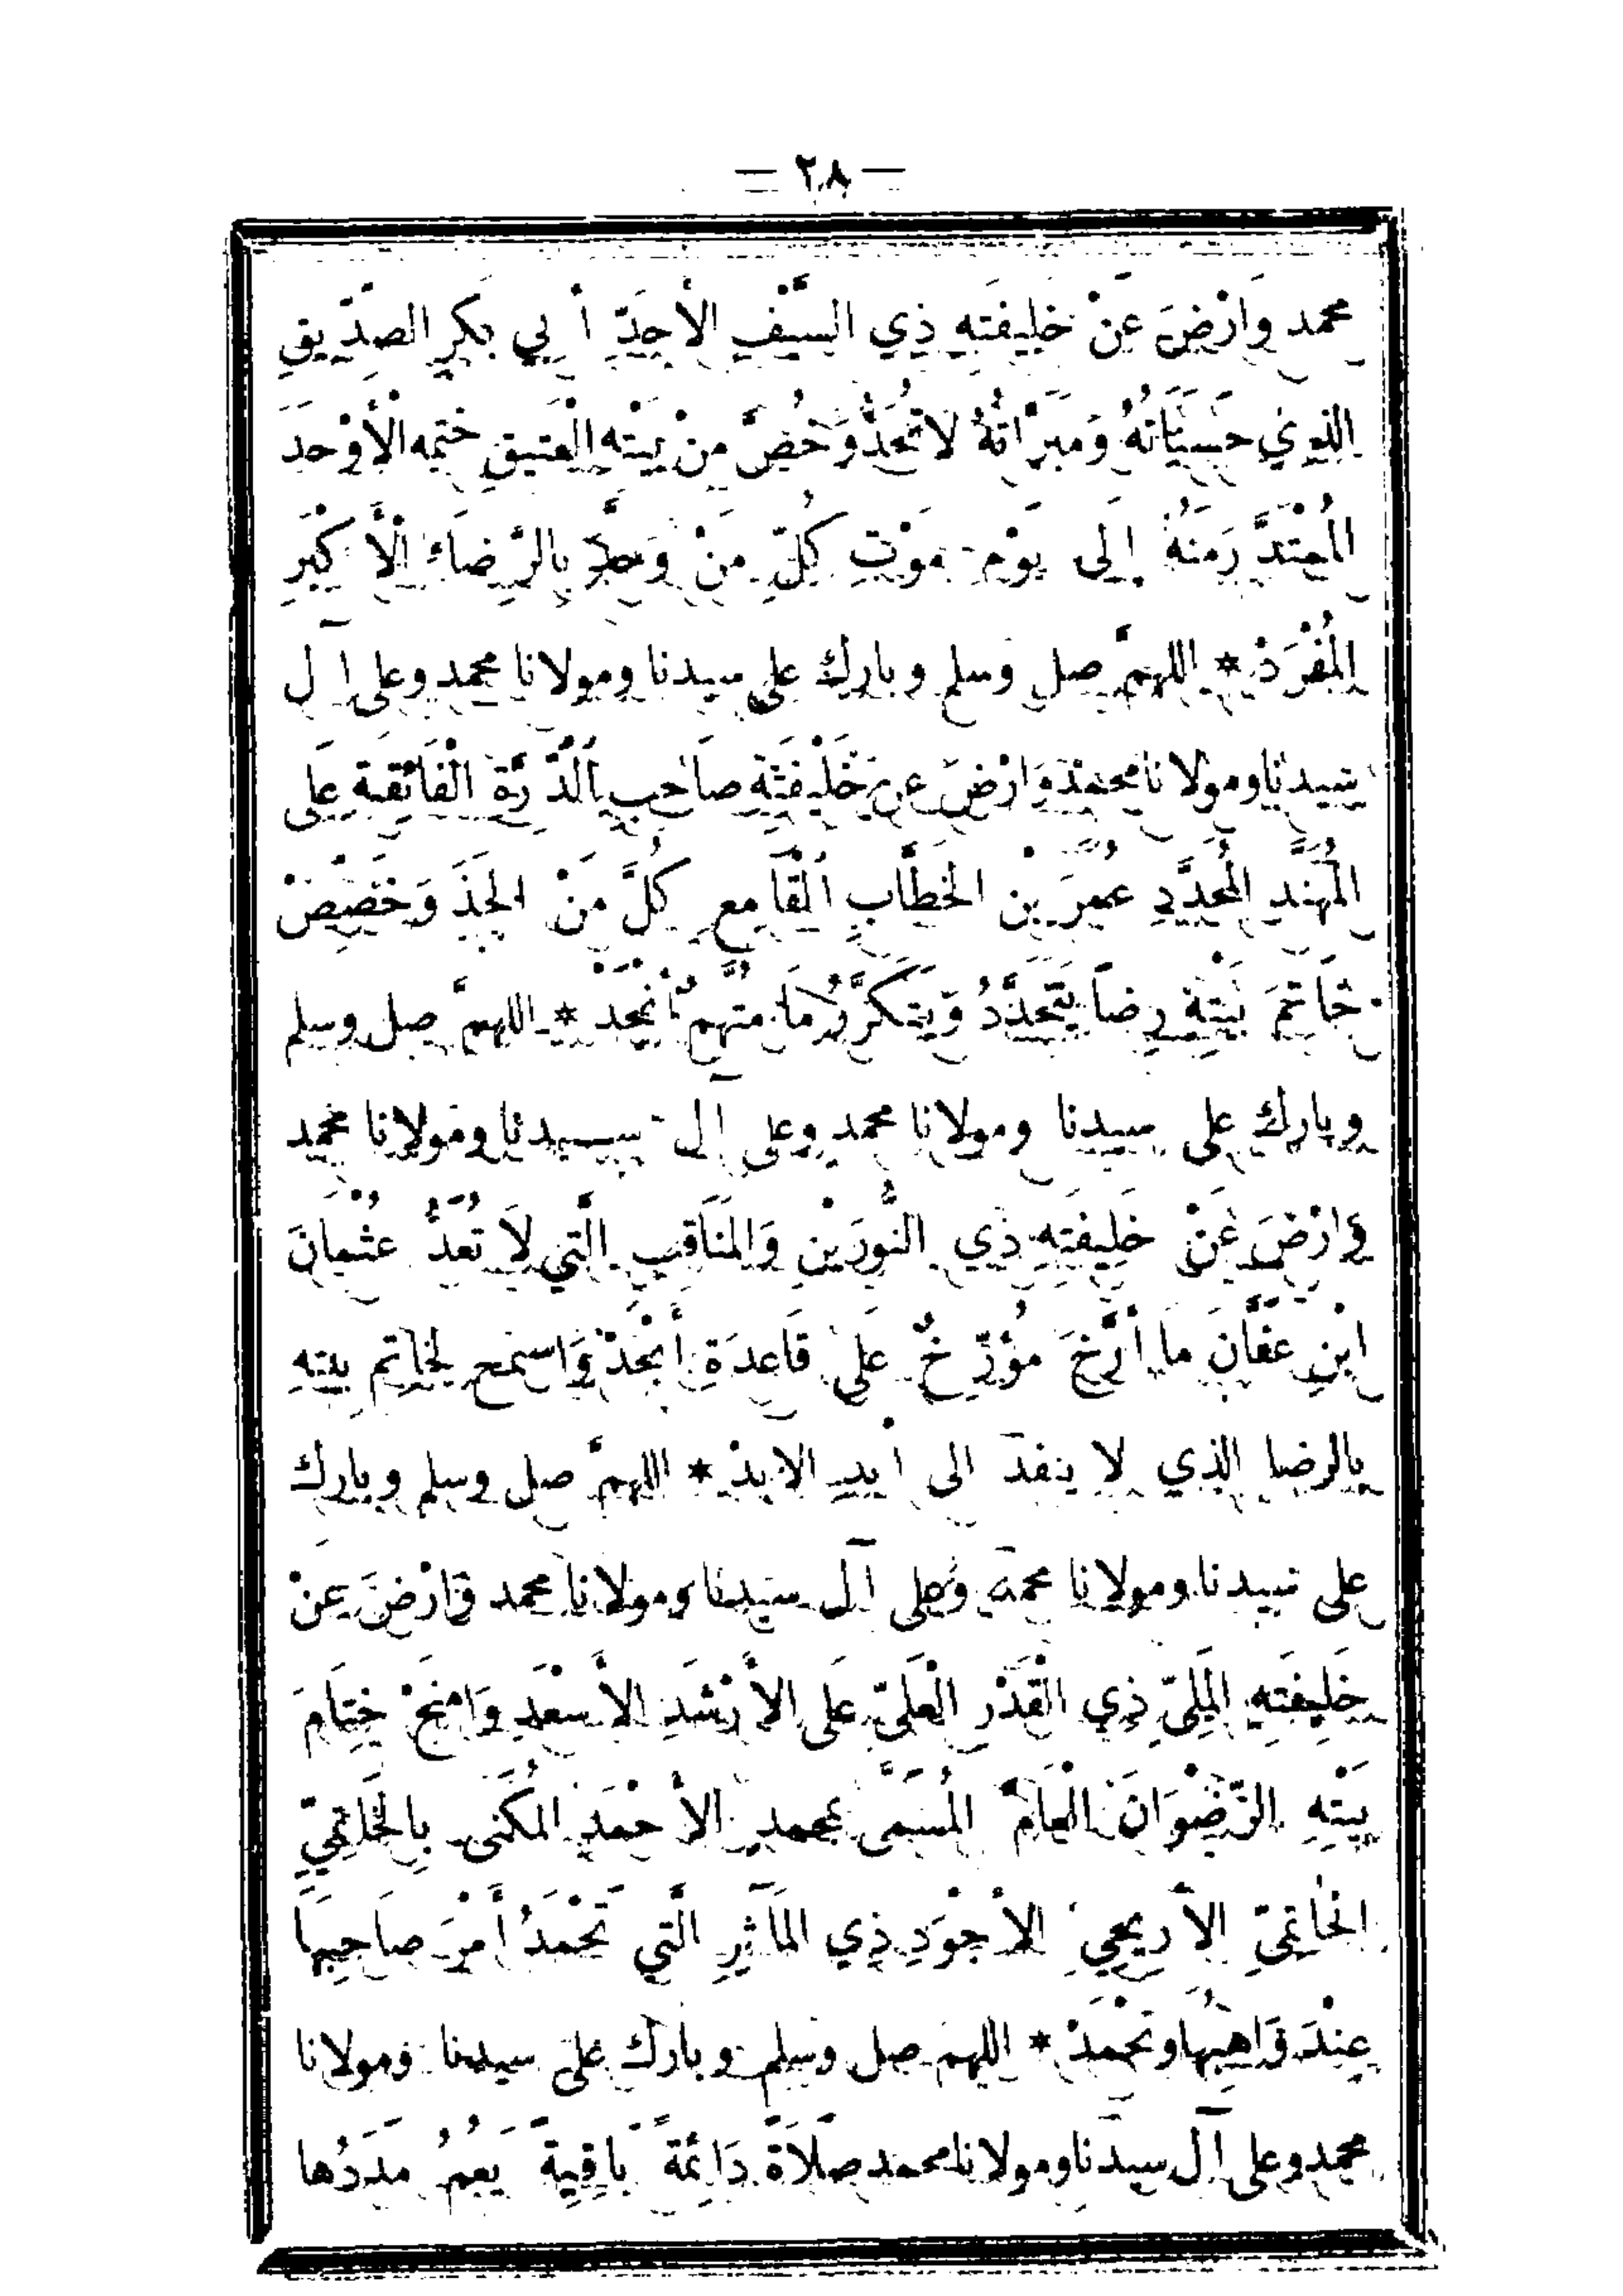 — ٢٨ —
محمد وَارْضَ عَنْ خَلِيفَتِهِ ذِي السَّيْفِ الأَحَدِّ أَبِي بَكْرٍ الصِّدِّيقِ
الَّذِي حَسَنَاتُهُ وَمَبَرَّاتُهُ لاَ تُحَدُّ وَخُصَّ مِنْ بَيْتِهِ الْعَتِيقِ خَتْمَهُ الْأَوْحَدَ
الْمُمْتَدَّ زَمَنُهُ إِلَى يَوْمِ مَوْتِ كُلِّ مَنْ وَحَّدَ بِالرِّضَاءِ الأَكْبَرِ
الْمُفْرَدْ * اللهمَّ صل وسلم وبارك على سيدنا ومولانا محمد وعلى آل
سيدنا ومولانا محمد وَارْضَ عن خَلِيفَتِهِ صَاحِبِ الدِّرَّةِ الْفَائِقَةِ عَلَى
الْمُهَنَّدِ الْمُحَدَّدِ عُمَرَ بْنِ الخَطَّابِ الْقَامِعِ كُلَّ مَنْ الْحَدَ وَخَصِّصْ
خَاتَمَ بَيْتِهِ رِضاً يَتَجَدَّدُ وَيَتَكَرَّرُ مَا مُتْهِمٌ أَنْجَدْ * اللهمَّ صل وسلم
وبارك على سيدنا ومولانا محمد وعلى آل سيدنا ومولانا محمد
وَارْضَ عَنْ خَلِيفَتِهِ ذِي النُّورَيْنِ وَالمَنَاقِبِ الَّتِي لاَ تُعَدُّ عُثْمَانَ
ابْنِ عَفَّانَ مَا أَرَّخَ مُؤَرِّخٌ عَلَى قَاعِدَةِ أَبْجَدْ وَاسْمَحْ لِخَاتِمِ بيتِهِ
بالرضا الذي لا ينفدُ الى أبدِ الابدْ * اللهمَّ صل وسلم وبارك
على سيدنا ومولانا محمد وعلى آل سيدنا ومولانا محمد وَارْضَ عَنْ
خَلِيفَتِهِ المَلِيِّ ذِي الْقَدْرِ الْعَلِيِّ عَلِي الأَرْشَدِ الأَسْعَدِ وَامْنَحْ خِتَامَ
بَيْتِهِ الرِّضْوَانَ الْعَامَّ الْمُسَمَّى بمحمدٍ الأَحْمَدِ المُكَنَى بِالْخَاتِمِيِّ
الْحَاتِمِيِّ الأَرِيحِيِّ الأَجْوَدِ ذِي المَآثِرِ الَّتِي تَحْمَدُ أَمْرَ صَاحِبِهَا
عِنْدَ وَاهِبِهَا وَتُحْمَدْ * اللهم صل وسلم وبارك على سيدنا ومولانا
محمد وعلى آل سيدنا ومولانا محمد صَلاَةً دَائِمَةً بَاقِيَةً يَعُمُّ مَدَدُهَا